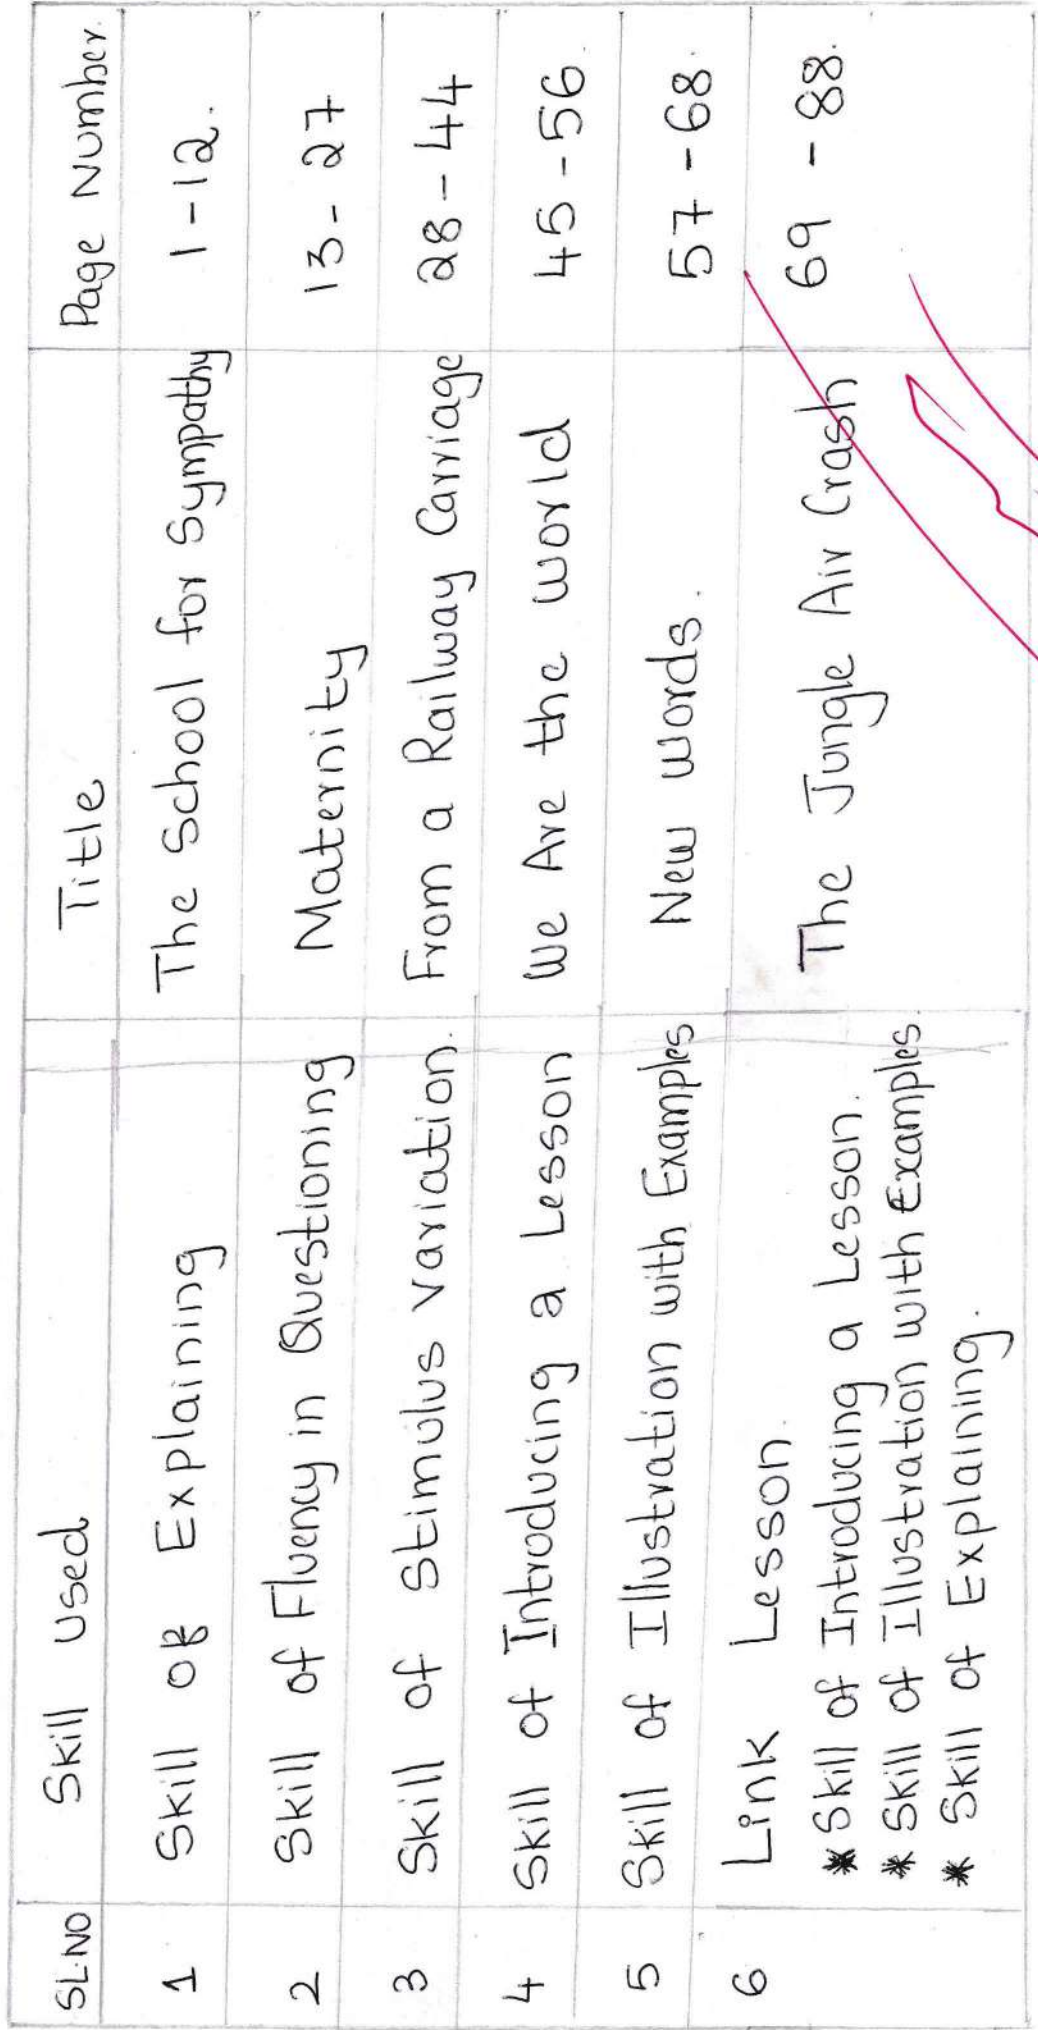 SL.NO Skill used Title Page Number
1 Skill of Explaining The School for Sympathy 1-12.
2 Skill of Fluency in Questioning Maternity 13-27
3 Skill of Stimulus variation. From a Railway Carriage 28-44
4 Skill of Introducing a Lesson We Are the world 45-56
5 Skill of Illustration with Examples New words. 57-68.
6 Link Lesson. The Jungle Air Crash 69-88.
* Skill of Introducing a Lesson.
* Skill of Illustration with Examples.
* Skill of Explaining.